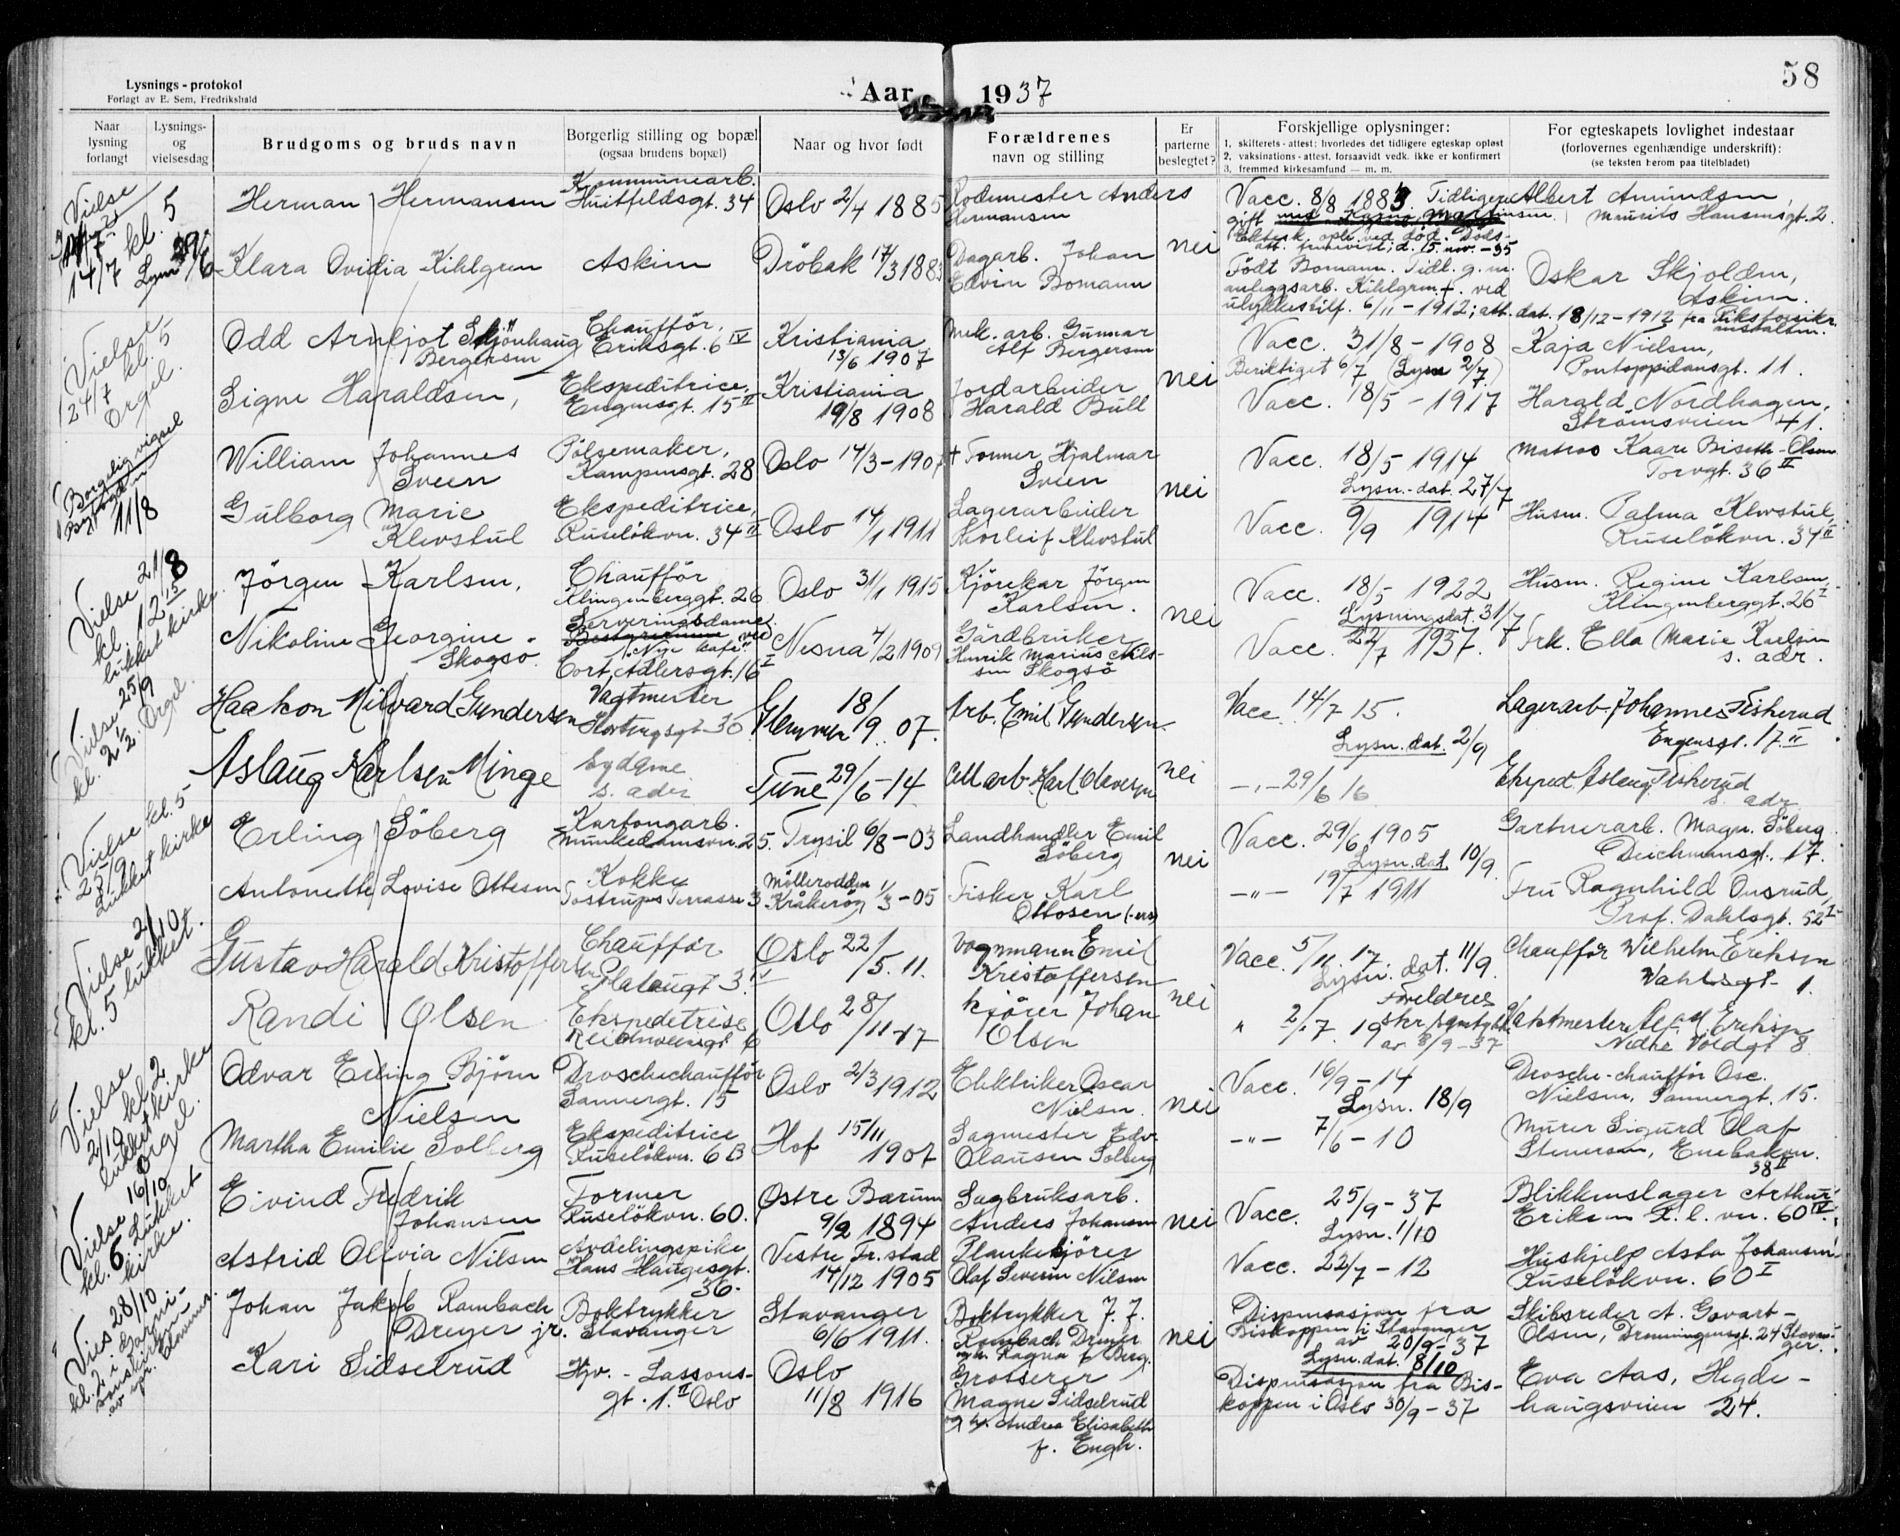 58
Lysnings-protokol
Forlagt av E. Sem, Fredrikshald
Aar 1937
Naar lysning forlangt
Lysnings- og vielsesdag
Brudgoms og bruds navn
Borgerlig stilling og bopæl (ogsaa brudens bopæl)
Naar og hvor født
Forældrenes navn og stilling
Er parterne beslegtet?
Forskjellige oplysninger:
1. skifterets-attest: hvorledes det tidligere egteskap opløst
2. vaksinations-attest, forsaavidt vedk. ikke er konfirmert
3. fremmed kirkesamfund — m. m.
For egteskapets lovlighet indestaar (forlovernes egenhændige underskrift): (se teksten herom paa titelbladet)
Vielse
14/7 kl. 5
Lysn 29/6
Herman Hermansen
Kommunearb.
Huitfeldsgt. 34
Oslo 2/4 1885
Rodemester Anders
Hermansen
Vacc. 8/8 1883. Tidligere
gift
Albert Amundsen,
Maurits Hansensgt. 2.
nei
Klara Ovidia Kihlgren
Askim
Dröbak 17/3 1883
Dagarb. Johan
Edvin Bomann
Ektesk. opl. ved död. Döds-
att. d. 15. nov. -35
Född Bomann. Tidl. g. m.
anleggsarb. Kihlgren. + ved
ulykkestilf. 6/11-1912; att. dat. 18/12-1912 fra Riksforsikr.
anstalten.
Oskar Skjolden,
Askim.
Vielse
24/7 kl. 5
Orgel.
Odd Arnljot Skjönhaug
Bergersen
Chaufför,
Eriksgt. 6 IV
Kristiania
13/6 1907
Mek. arb. Gunnar
Alf Bergersen
Vacc. 31/8 - 1908
Kaja Nielsen,
Pontoppidansgt. 11.
nei
Beriktiget 6/7 (Lysn 2/7.)
Signe Haraldsen,
Ekspeditrice,
Engensgt. 15 II
Kristiania
19/8 1908
Jordarbeider
Harald Bull
Vacc. 18/5 - 1917
Harald Nordhagen,
Strömsveien 41.
Borgerlig vigsel
11/8
William Johannes
Sveen
Pölsemaker,
Kampensgt. 28
Oslo 14/3-1907
+ Former Hjalmar
Sveen
nei
Vacc. 18/5 1914
Lysn.-dat. 27/7
Matros Kaare Biseth-Olsen
Torvgt. 36 II
Gulborg Marie
Klevstul
Ekspeditrice,
Ruselökvn. 34 II
Oslo 14/1 1911
Lagerarbeider
Thorleif Klevstul
Vacc. 9/9 1914
Husm. Palma Klevstul,
Ruselökvn. 34 II
Vielse 21/8
kl. 12 15
lukket kirke.
Jörgen Karlsen,
Chaufför
Klingenberggt. 26
Oslo 31/1 1915
Kjörekar Jörgen
Karlsen.
nei
Vacc. 18/5 1922
Lysningsdat. 31/7
Husm. Regine Karlsen,
Klingenberggt. 26 I
Nikoline Georgine
Skogsö.
Serveringsdame
ved
"Nye kafe"
Cort Adlersgt. 16 I
Nesna 4/2 1909
Gårdbruker
Henrik Marius Niels-
sen Skogsö
Vacc. 22/7 1937.
Frk. Ella Marie Karlsen
s. adr.
Vielse 25/9
kl. 2 1/2. Orgel.
Haakon Milvard Gundersen
Vagtmester
Stortingsgt. 30
Glemmen 18/9 07.
Arb. Emil Gundersen
Vacc. 14/7 15.
Lysn. dat. 2/9
Lagerarb. Johannes Fiskerud
Engensgt. 17 II
nei
Aslaug Karlsen Minge
Sydame
s. adr
Tune 29/6-14
Cell arb Karl Olavesen
-"- 29/6 16
Eksped. Aslaug Fiskerud
s. adr
Vielse kl. 5
25/9
Lukket kirke
Erling Söberg
Kartongarb.
Munkedamsvn. 25.
Trysil 6/8-03
Landhandler Emil
Söberg
nei
Vacc. 29/6 1905
Lysn. dat. 10/9.
Gartnerarb. Magn. Söberg
Deichmansgt. 17.
Antonette Lovise Ottesen
Kokke
Tostrups Terrasse 3
Möllerodden
Kråkeröy 1/3-05
Fisker Karl
Ottosen (-ers)
-"- 19/7 1911
Fru Ragnhild Onsrud,
Prof. Dahlsgt. 52 I
Vielse 2/10
kl. 5 lukket.
Gustav Harald Kristoffersen
Chaufför
Platougt 3. IV
Oslo 22/5. 11.
Vognmann Emil
Kristoffersen
nei
Vacc. 5/11 17.
Lysn. dat. 11/9.
Chaufför Wilhelm Eriksen
Wahlsgt 1.
Randi Olsen
Ekspeditrise
Reichweinsgt 6
Oslo 28/11-17
Kjörer Johan
Olsen
" 2/7 19
Foreldres
skr. samtykke
av 8/9-37
Vaktmester Eriksen
Nedre Voldgt 8
Vielse
2/10 kl. 2
lukket kirke
orgel.
Odvar Erling Björn
Nielsen
Droschechaufför
Sannergt. 15
Oslo 2/3 1912
Elektriker Oscar
Nielsen.
nei
Vacc. 16/9-14
Lysn. 18/9
Drosche-chaufför Osc.
Nielsen, Sannergt. 15.
Martha Emilie Solberg
Ekspeditrice
Ruselökvn. 6 B
Hof 15/11
1907
Sagmester Edv.
Olausen Solberg
-"- 7/6-10
Murer Sigurd Olaf
Stenersen, Enebakvn.
38 II
Vielse 16/10
kl. 6. Lukket
kirke.
Eivind Fredrik
Johansen
Former
Ruselökvn. 60.
Östre Bærum
9/2 1894
Sagbruksarb.
Anders Johansen
nei
Vacc. 25/9-37
Lysn. 1/10
Blikkenslager Arthur
Eriksen R. l. vn. 60 IV.
Astrid Olivia Nilsen
Avdelingspike
Hans Haugesgt.
36.
Vestre Fr.stad
14/12 1905
Plankekjörer
Olaf Severin Nilsen
Vacc. 22/7-12
Hushjelp Asta Johansen
Ruselökvn. 60 I
Vies 28/10
kl. 2 i Garni-
sonskirken
av spr.
Johan Jakob Rambach
Dreyer jr.
Boktrykker
Stavanger
Stavanger
6/6 1911.
Boktrykker J. J.
Rambach Dreyer
og h. Ragna f. Berg.
nei
Dispensasjon fra
Biskoppen i Stavanger
av 20/9-37
Lysn. dat. 8/10
Skibsreder A. Gowart-
Olsen, Dronningensgt. 24 Stavan-
ger.
Kari Sidselrud
Hjv. - Lassons-
gt. 1. II Oslo
Oslo
11/8 1916
Grosserer
Magne Sidselrud
og h. Andrea Elisabeth
f. Engh.
Dispensasjon fra Bis-
koppen i Oslo 30/9-37
Eva Aas, Hegde-
haugsveien 24.